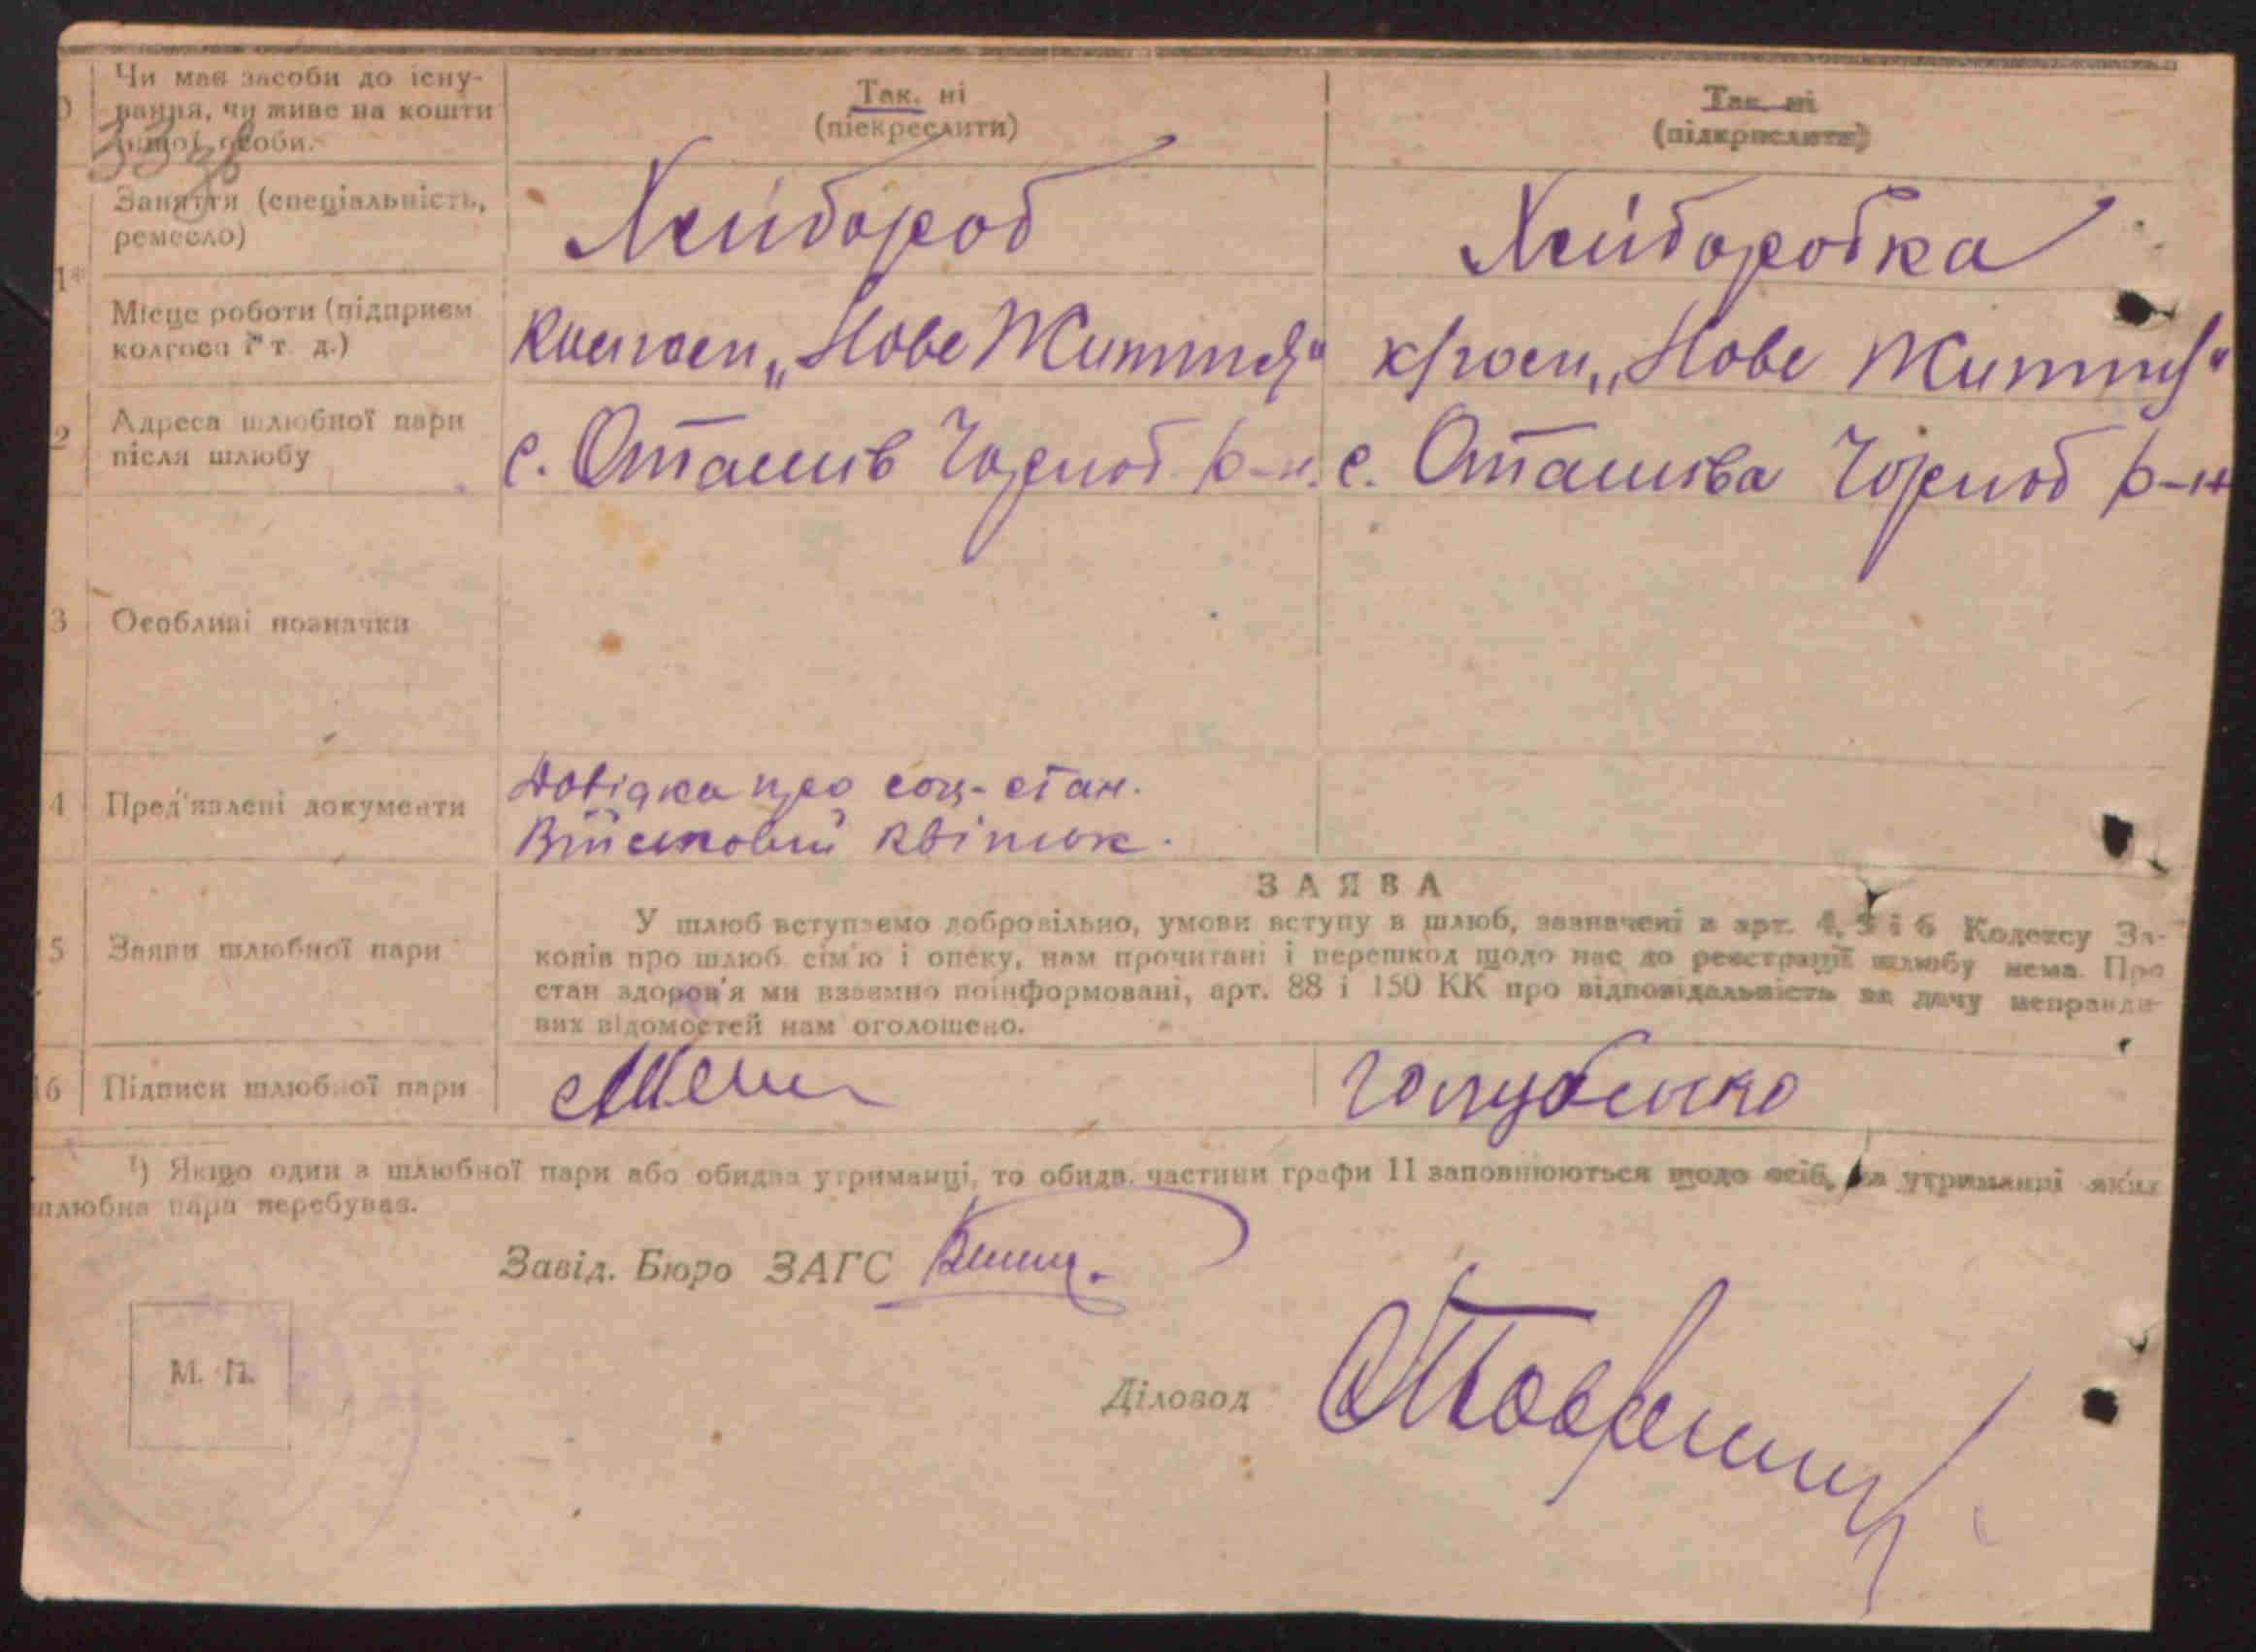 Чи має засоби до існу-
вання, чи живе на кошти
іншої особи.
Так. ні
(піекреслити)
Так ні
(підкреслити)
33
Заняття (спеціальність,
ремесло)
Хлібороб
Хліборобка
Місце роботи (підприєм
колгосп і т. д.)
Колгосп „Нове Життя"
к/госп „Нове Життя"
2 Адреса шлюбної пари
після шлюбу
с. Оташів Чорноб. р-н.
с. Оташова Чорноб р-н
3 Особливі позначки
4 Пред'явлені документи
Довідка про соц-стан.
Військовий квіток.
ЗАЯВА
5 Заяви шлюбної пари
У шлюб вступаємо добровільно, умови вступу в шлюб, зазначені в арт. 4, 5 і 6 Кодексу За-
конів про шлюб сім'ю і опеку, нам прочитані і перешкод щодо нас до реєстрації шлюбу нема. Про
стан здоров'я ми взаємно поінформовані, арт. 88 і 150 КК про відповідальність за дачу неправди-
вих відомостей нам оголошено.
6 Підписи шлюбної пари
Голубенко
¹) Якщо один з шлюбної пари або обидва утриманці, то обидв. частини графи 11 заповнюються щодо осіб, на утриманні яких
шлюбна пара перебуває.
Завід. Бюро ЗАГС
М. П.
Діловод